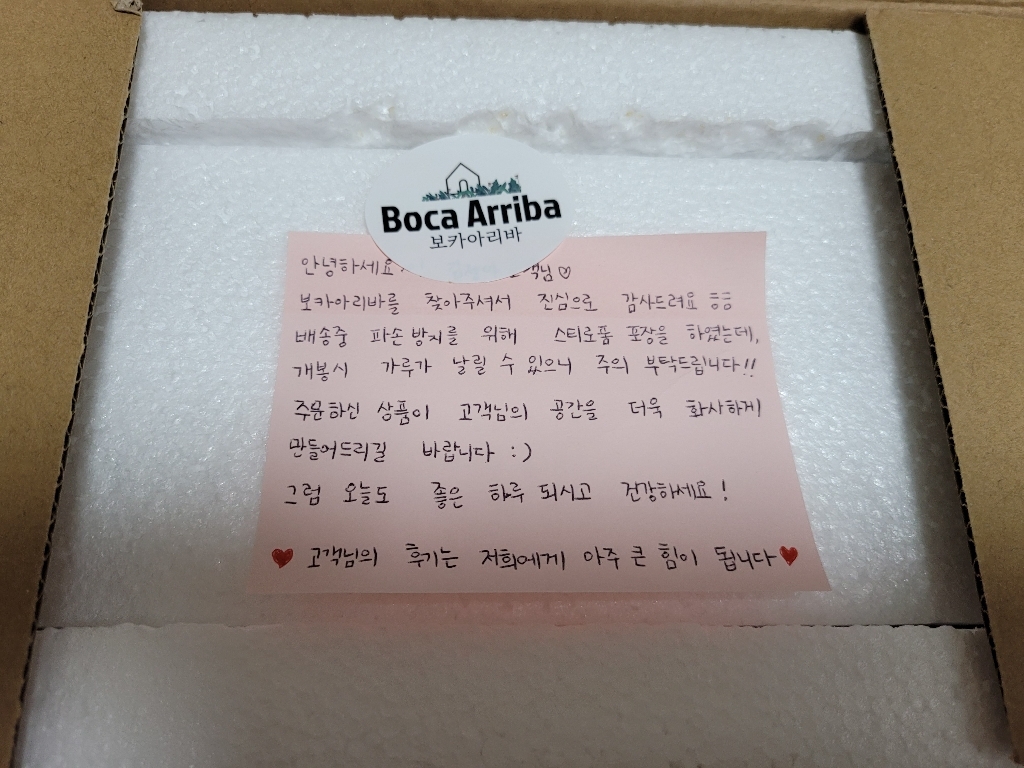 Boca Arriba
보카아리바
안녕하세요
고객님♡
보카아리바를 찾아주셔서 진심으로 감사드려요 ㅎㅎ
배송중 파손방지를 위해 스티로폼 포장을 하였는데,
개봉시 가루가 날릴 수 있으니 주의 부탁드립니다!!
주문하신 상품이 고객님의 공간을 더욱 화사하게
만들어드리길 바랍니다 :)
그럼 오늘도 좋은 하루 되시고 건강하세요!
♥ 고객님의 후기는 저희에게 아주 큰 힘이 됩니다 ♥